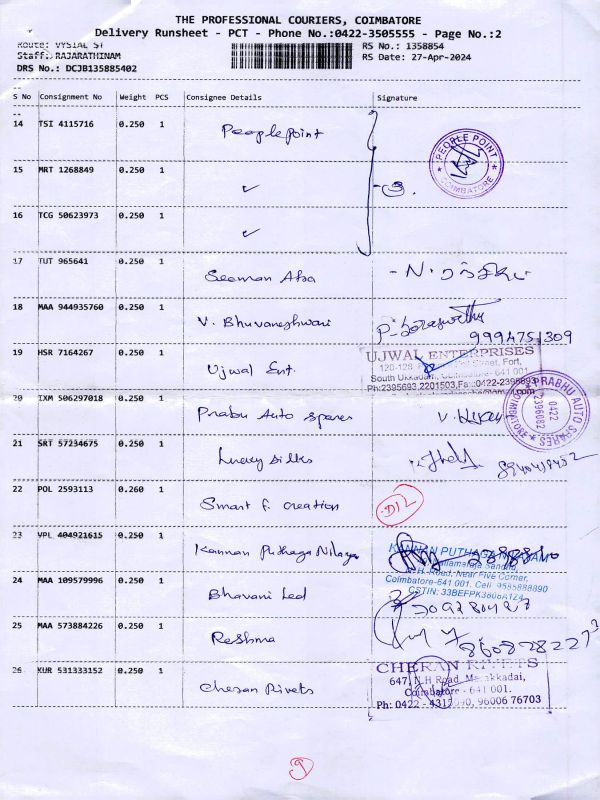 THE PROFESSIONAL COURIERS, COIMBATORE
Delivery Runsheet - PCT - Phone No.:0422-3505555 - Page No.:2
Route: VYSIAL ST RS No.: 1358854
Staff: RAJARATHINAM RS Date: 27-Apr-2024
DRS No.: DCJB135885402
S No Consignment No Weight PCS Consignee Details Signature
14 TSI 4115716 0.250 1 Peoplepoint
PEOPLE POINT
COIMBATORE
15 MRT 1268849 0.250 1 ✓
16 TCG 50623973 0.250 1 ✓
17 TUT 965641 0.250 1 Seeman Afsa
18 MAA 944935760 0.250 1 V. Bhuvaneshwari
9994751309
19 HSR 7164267 0.250 1 Ujwal Ent.
UJWAL ENTERPRISES
Street, Fort,
South Ukkadam, Coimbatore - 641 001
Ph:2395693,2201503,Fax:0422-2398693
20 IXM 506297018 0.250 1 Prabu Auto Spares
PRABHU AUTO SPARES
0422
2396082
21 SRT 57234675 0.250 1 Luxury Silks
22 POL 2593113 0.260 1 Smart f. creation
D12
23 VPL 404921615 0.250 1 Kannan Puthaga Nilayam
KANNAN PUTHAGA NILAYAM
Road, Near Five Corner,
Coimbatore-641 001. Cell: 9585888890
GSTIN: 33BEFPK3608A124
24 MAA 109579996 0.250 1 Bhavani Led
25 MAA 573884226 0.250 1 Reshma
8608282273
26 KUR 531333152 0.250 1 Cheran Rivets
CHERAN RIVETS
647, N.H Road, Marakkadai,
Coimbatore - 641 001.
Ph: 0422 - 96006 76703
9